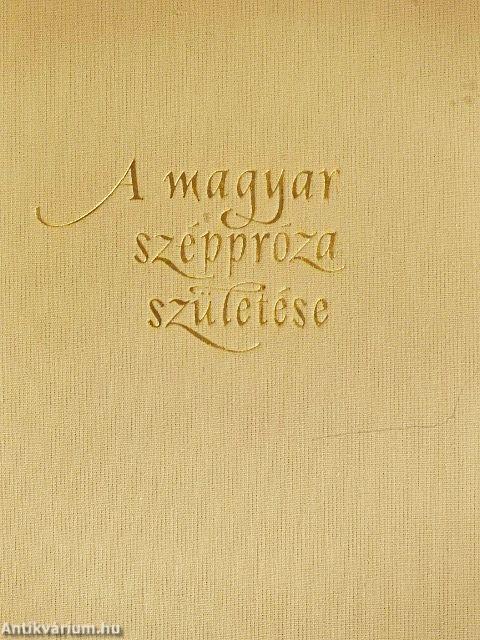 A magyar
széppróza
születése
Antikvárium.hu